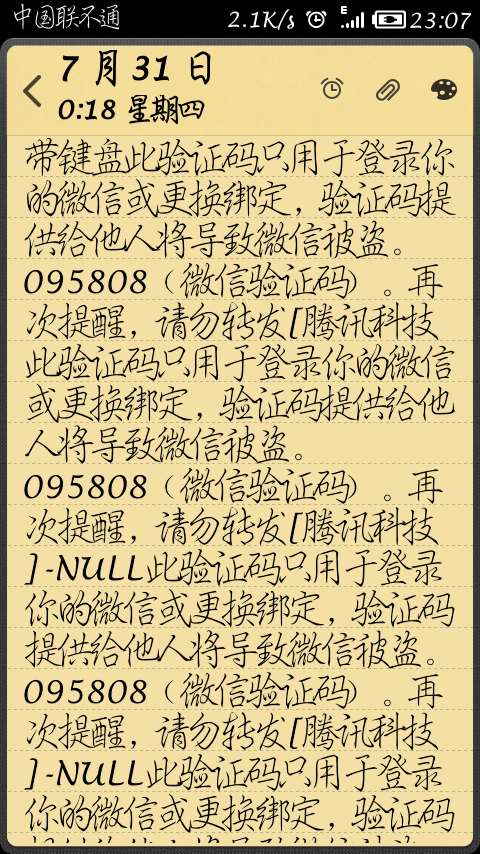 中国联不通 2.1K/s E 23:07
7 月 31 日
0:18 星期四
带键盘此验证码只用于登录你
的微信或更换绑定，验证码提
供给他人将导致微信被盗。
095808（微信验证码）。再
次提醒，请勿转发[腾讯科技
此验证码只用于登录你的微信
或更换绑定，验证码提供给他
人将导致微信被盗。
095808（微信验证码）。再
次提醒，请勿转发[腾讯科技
]-NULL此验证码只用于登录
你的微信或更换绑定，验证码
提供给他人将导致微信被盗。
095808（微信验证码）。再
次提醒，请勿转发[腾讯科技
]-NULL此验证码只用于登录
你的微信或更换绑定，验证码